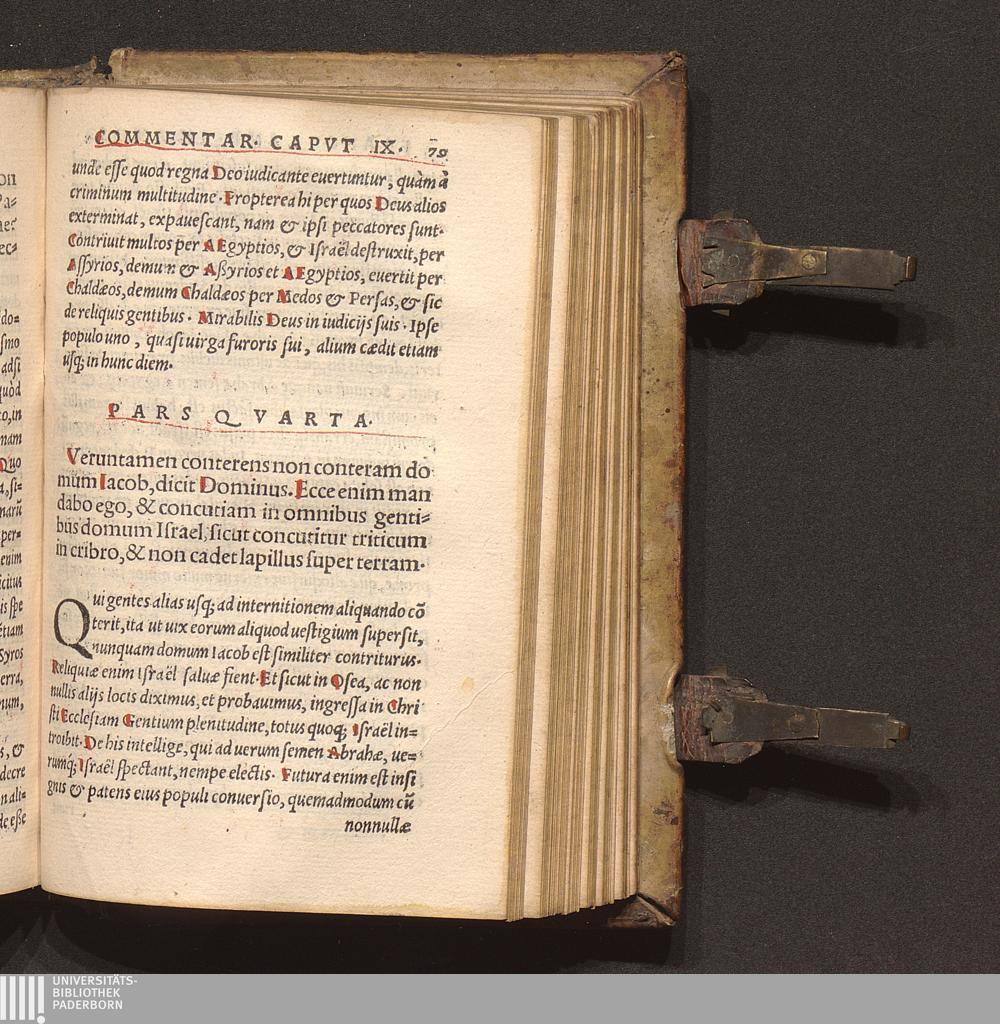 COMMENTAR. CAPVT IX. 79
unde esse quod regna Deo iudicante euertuntur, quàm à
criminum multitudine. Propterea hi per quos Deus alios
exterminat, expauescant, nam & ipsi peccatores sunt.
Contriuit multos per AEgyptios, & Israël destruxit, per
Assyrios, demum & Aßyrios et AEgyptios, euertit per
Chaldæos, demum Chaldæos per Medos & Persas, & sic
de reliquis gentibus. Mirabilis Deus in iudicijs suis. Ipse
populo uno, quasi uirga furoris sui, alium cædit etiam
usq; in hunc diem.
PARS QVARTA.
Veruntamen conterens non conteram do
mum Iacob, dicit Dominus. Ecce enim man
dabo ego, & concutiam in omnibus genti=
bus domum Israel, sicut concutitur triticum
in cribro, & non cadet lapillus super terram.
Qui gentes alias usq; ad internitionem aliquando cō
terit, ita ut uix eorum aliquod uestigium supersit,
nunquam domum Iacob est similiter contriturus.
Reliquiæ enim Israël saluæ fient. Et sicut in Osea, ac non
nullis alijs locis diximus, et probauimus, ingressa in Chri
sti Ecclesiam Gentium plenitudine, totus quoq; Israël in=
troibit. De his intellige, qui ad uerum semen Abrahæ, ue=
rumq́; Israël spectant, nempe electis. Futura enim est insi
gnis & patens eius populi conuersio, quemadmodum cū
nonnullæ
UNIVERSITÄTS-
BIBLIOTHEK
PADERBORN